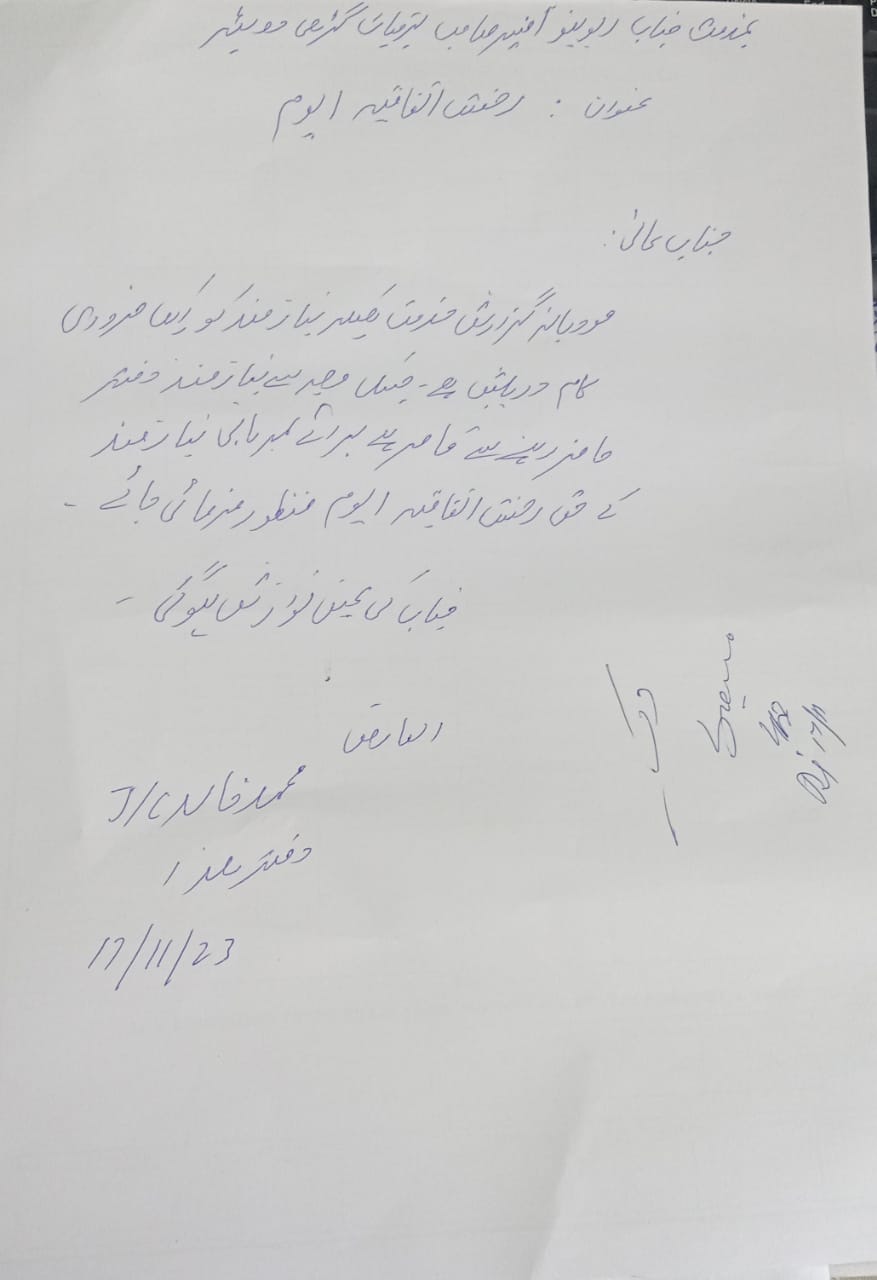 بخدمت جناب ریونیو آفیسر صاحب برقیات گڑھی دوپٹہ
عنوان : رخصت اتفاقیہ ایوم
جناب عالی:
مودبانہ گزارش خدمت ہیکہ نیازمند کو ایک ضروری
کام درپیش ہے۔ جسکی وجہ سے نیازمند دفتر
حاضر رہنے سے قاصر ہے براے مہربانی نیازمند
کے حق رخصت اتفاقیہ ایوم منظور فرمائی جائے۔
جناب کی عین نوازش ہوگی۔
العارض
محمد خالد J/C
دفتر ہذا
17/11/23
17/11